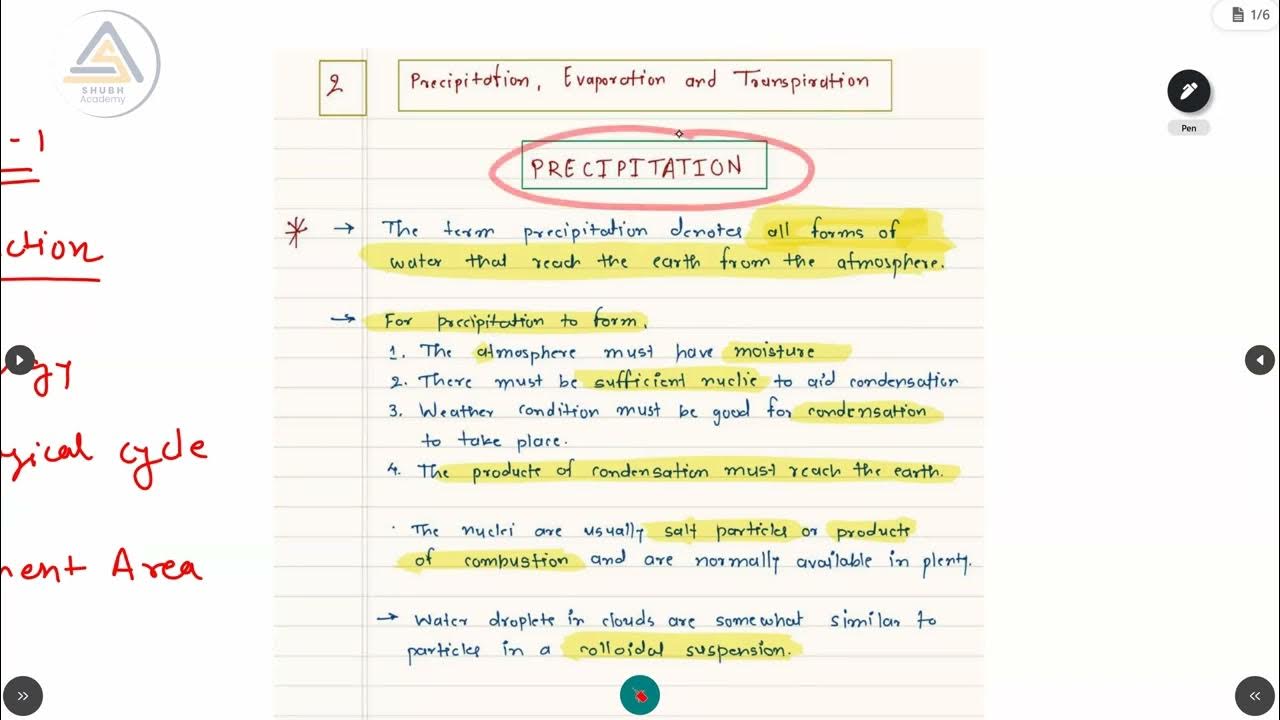 SHUBH
Academy
1/6
Pen
- 1
ction
gy
gical cycle
ment Area
2
Precipitation, Evaporation and Transpiration
PRECIPITATION
* → The term precipitation denotes all forms of
water that reach the earth from the atmosphere.
→ For precipitation to form,
1. The atmosphere must have moisture
2. There must be sufficient nuclie to aid condensation
3. Weather condition must be good for condensation
to take place.
4. The products of condensation must reach the earth.
· The nuclei are usually salt particles or products
of combustion and are normally available in plenty.
→ Water droplets in clouds are somewhat similar to
particles in a colloidal suspension.